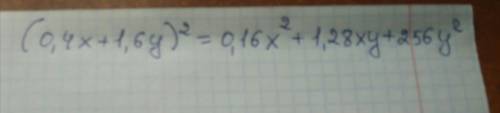 (0,4x+1,6y)² = 0,16x² + 1,28xy + 256y²